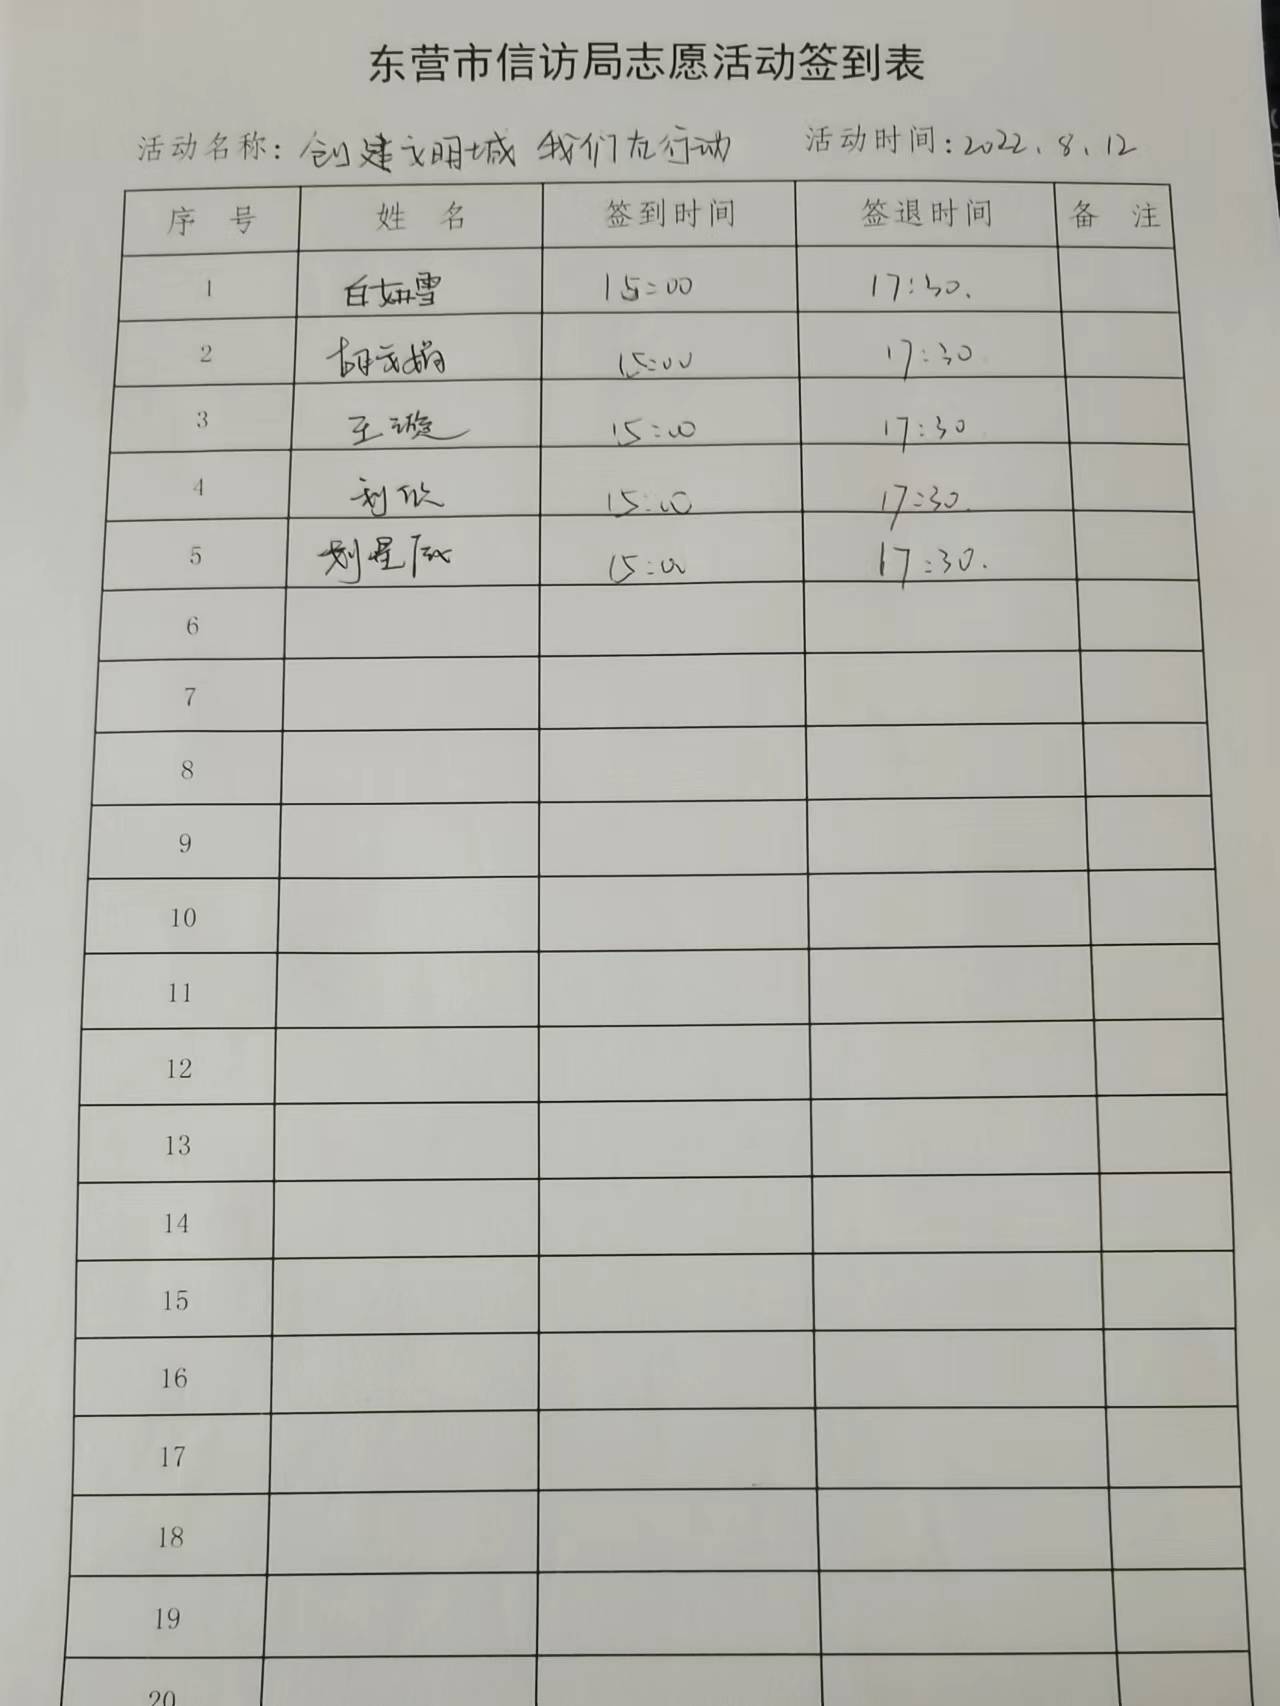 东营市信访局志愿活动签到表
活动名称：创建文明城 我们在行动 活动时间：2022.8.12
序号 姓名 签到时间 签退时间 备注
1 白如雪 15:00 17:30.
2 胡文娟 15:00 17:30
3 王璇 15:00 17:30
4 刘欣 15:00 17:30.
5 刘星辰 15:00 17:30.
6
7
8
9
10
11
12
13
14
15
16
17
18
19
20